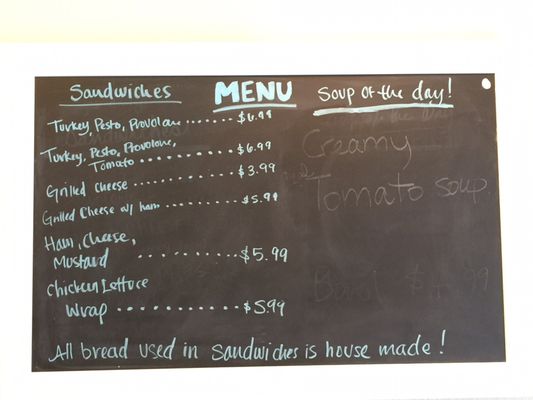 Sandwiches
MENU
Soup of the day!
Turkey, Pesto, Provolone ...... $6.99
Turkey, Pesto, Provolone,
Tomato .......... $6.99
Grilled Cheese .......... $3.99
Grilled Cheese w/ ham ....... $5.99
Ham, Cheese,
Mustard .......... $5.99
Chicken Lettuce
Wrap .......... $5.99
Creamy
Tomato Soup
Bowl
All bread used in sandwiches is house made!